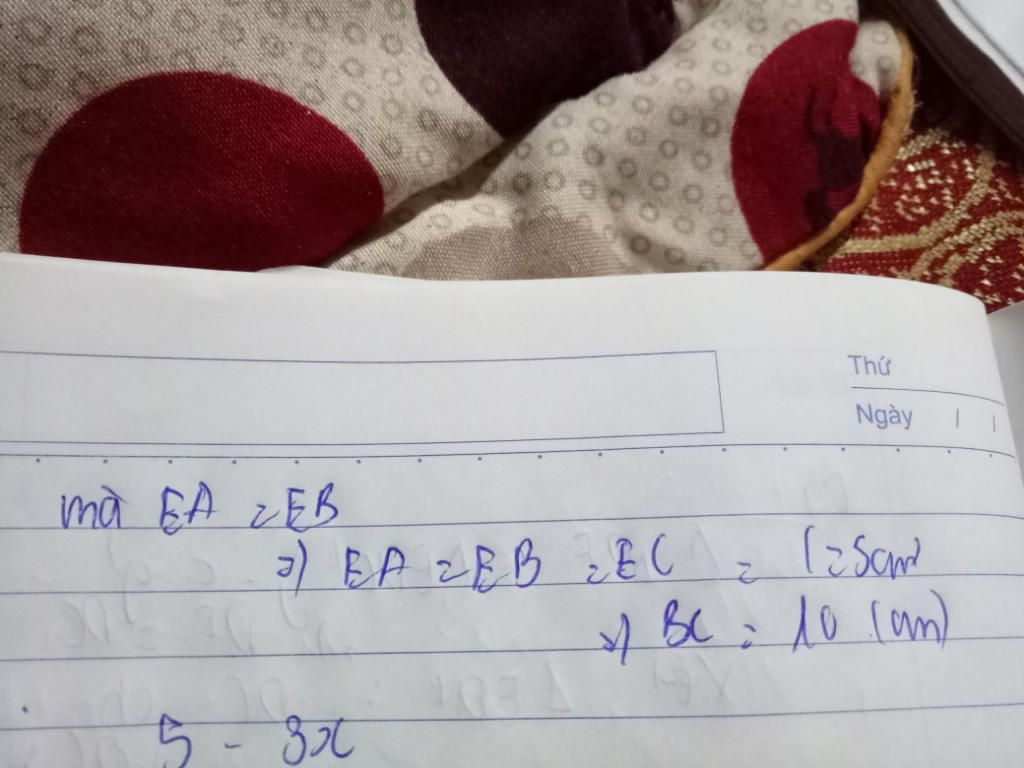 Thứ
Ngày / /
mà EA = EB
=> EA = EB = EC = = 5cm
=> BC = 10 (cm)
5 - 3x